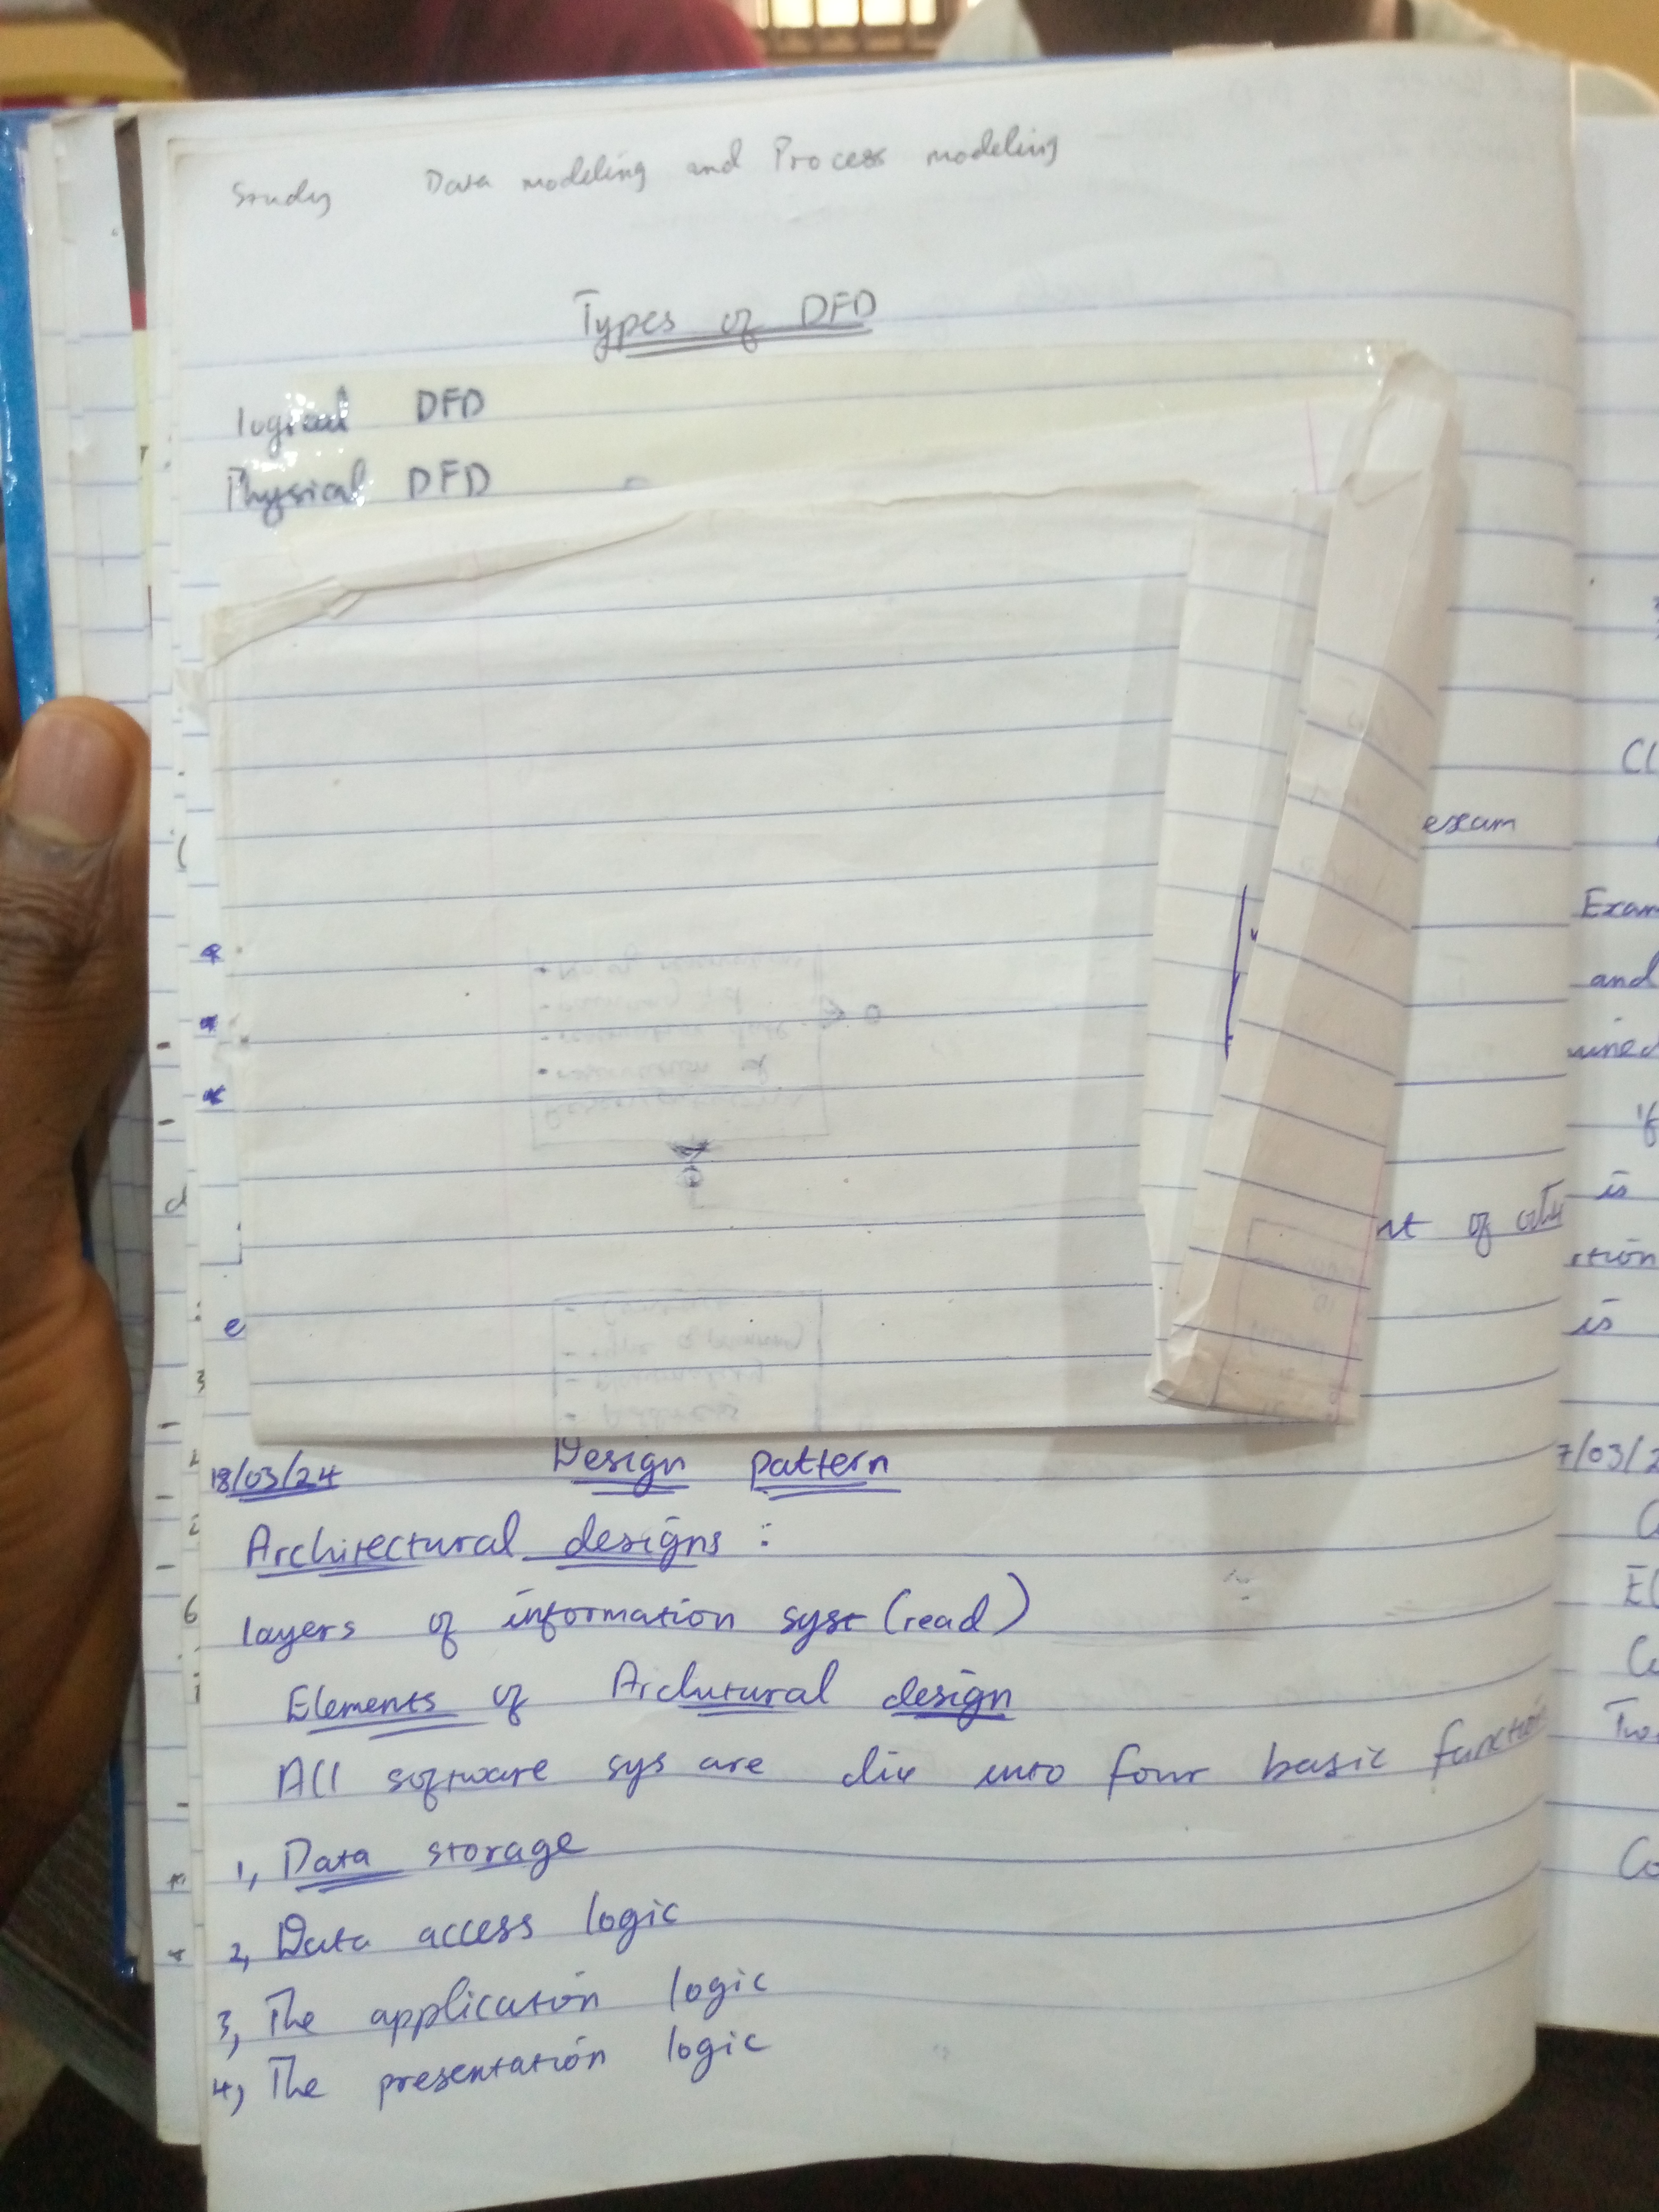 Study Data modeling and Process modeling
Types of DFD
logical DFD
Physical DFD
exam
nt of
e
18/03/24 Design pattern
Architectural designs :
layers of information syst (read)
Elements of Archutural design
All software sys are div into four basic function
1, Data storage
2, Data access logic
3, The application logic
4, The presentation logic
Exam
and
if
is
is
7/03/2